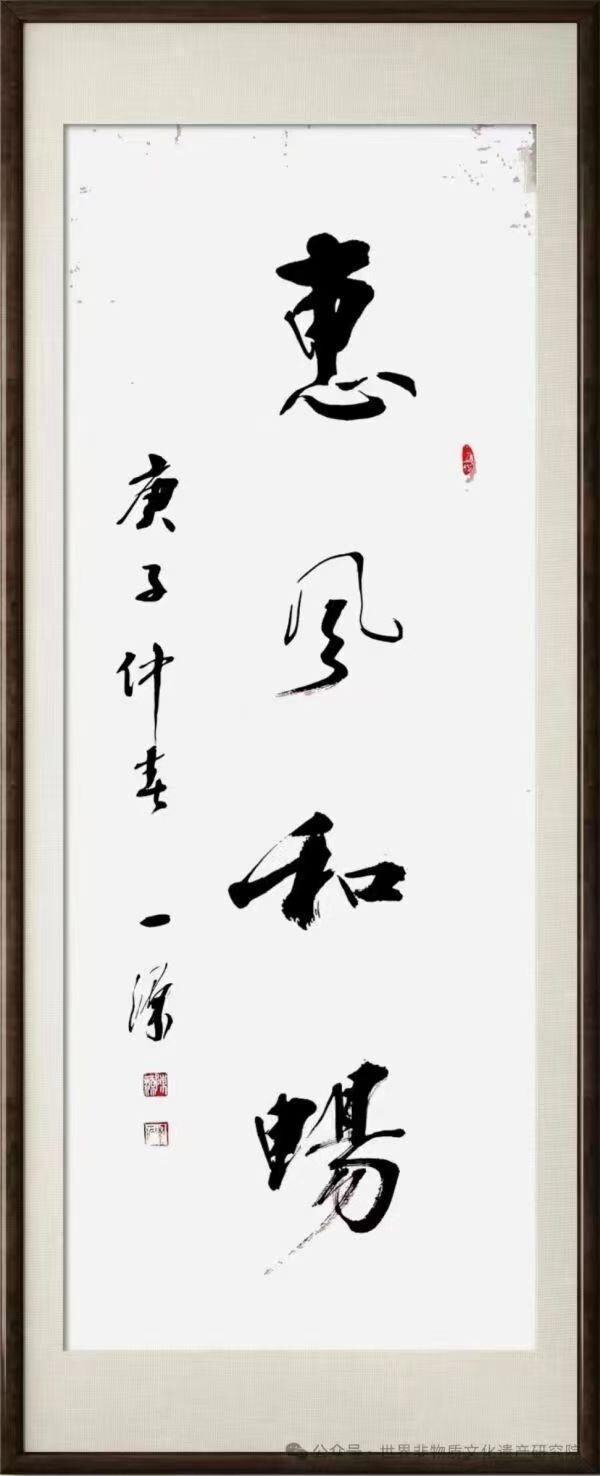 惠风和暢
庚子仲春 一源
公众号·世界非物质文化遗产研究院